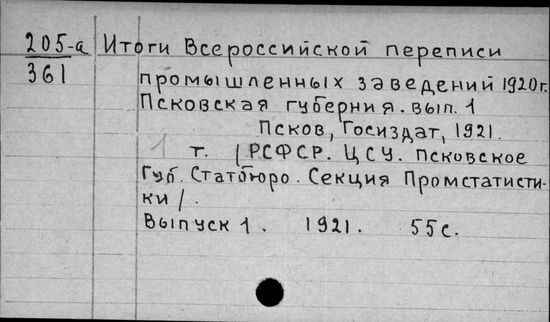 205-а Итоги Всероссийской переписи
361
промышленных заведений 1920г.
Псковская губерния. вып. 1
Псков, Госиздат, 1921.
1 т. /РСФСР. ЦСУ. Псковское
Губ. Статбюро. Секция Промстатисти-
ки/.
Выпуск 1. 1921. 55с.